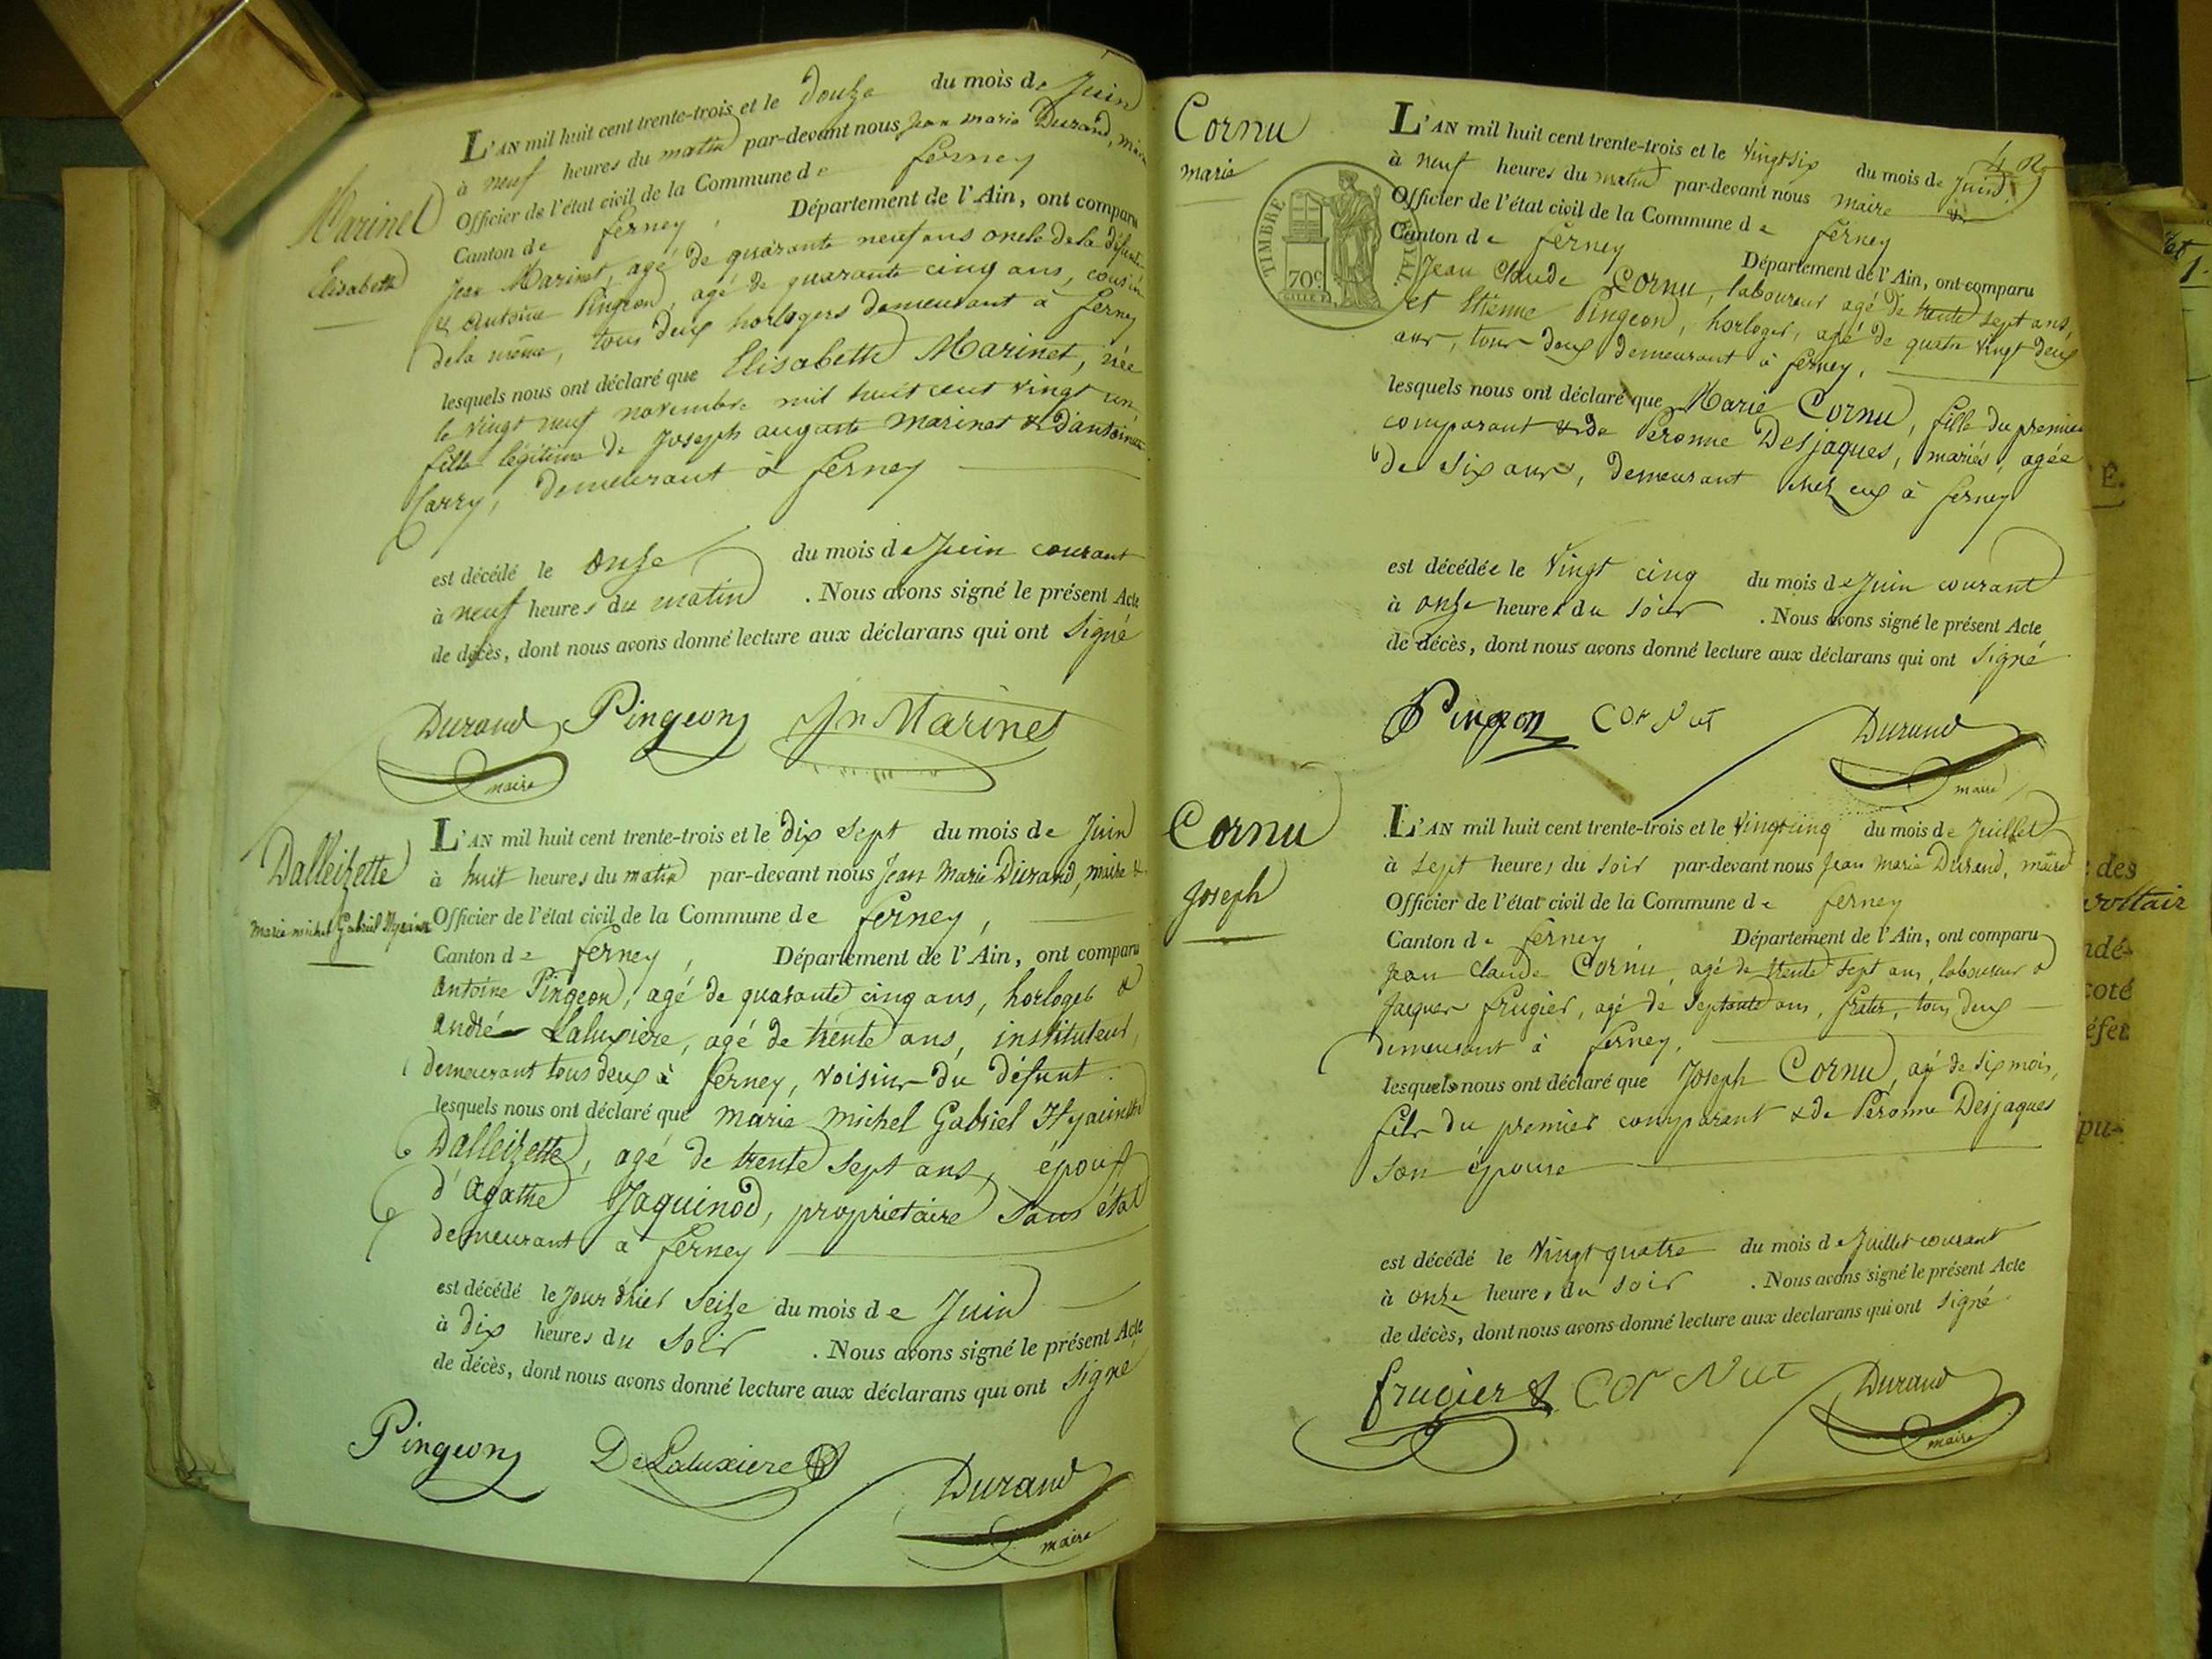 Marinet
Elisabeth
L'AN mil huit cent trente-trois et le douze du mois de Juin
à neuf heures du matin par-devant nous Jean Marie Durand, maire
Officier de l'état civil de la Commune de ferney
Canton de ferney, Département de l'Ain, ont comparu
Jean Marinet, agé de quarante neuf ans oncle de la défunte
& antoine Pingeon, agé de quarante cinq ans, cousin
de la même, tous deux horlogers demeurant à ferney
lesquels nous ont déclaré que Elisabeth Marinet, née
le vingt neuf novembre mil huit cent vingt un,
fille légitime de Joseph auguste marinet & d'antoinette
Carry, demeurant à ferney
est décédé le onze du mois de Juin courant
à neuf heures du matin . Nous avons signé le présent Acte
de décès, dont nous avons donné lecture aux déclarans qui ont signé
Durand Pingeon Jn Marinet
maire
Dalleizette
marie michel Gabriel Hyacinte
L'AN mil huit cent trente-trois et le dix sept du mois de Juin
à huit heures du matin par-devant nous Jean Marie Durand, maire &
Officier de l'état civil de la Commune de ferney,
Canton de ferney, Département de l'Ain, ont comparu
Antoine Pingeon, agé de quarante cinq ans, horloger &
André Laluxière, agé de trente ans, instituteur,
demeurant tous deux à ferney, voisins du défunt.
lesquels nous ont déclaré que marie michel Gabriel Hyacinthe
Dalleizette, agé de trente sept ans, époux
d'Agathe Jaquinod, propriétaire sans état
demeurant à ferney
est décédé le jour d'hier seize du mois de Juin
à dix heures du soir . Nous avons signé le présent Acte
de décès, dont nous avons donné lecture aux déclarans qui ont signé
Pingeon DeLaluxiere
Durand
maire
Cornu
marie
TIMBRE ROYAL
70c
42
L'AN mil huit cent trente-trois et le vingt six du mois de Juin
à neuf heures du matin par-devant nous maire &
Officier de l'état civil de la Commune de ferney
Canton de ferney Département de l'Ain, ont comparu
Jean Claude Cornu, laboureur agé de trente sept ans,
et Etienne Pingeon, horloger, agé de quatre vingt deux
ans, tous deux demeurant à ferney,
lesquels nous ont déclaré que Marie Cornu, fille du premier
comparant & de Péronne Desjaques, mariés, agée
de six ans, demeurant chez eux à ferney
est décédée le vingt cinq du mois de Juin courant
à onze heures du soir . Nous avons signé le présent Acte
de décès, dont nous avons donné lecture aux déclarans qui ont signé
E Pingeon Cornut Durand
maire
Cornu
Joseph
L'AN mil huit cent trente-trois et le vingt cinq du mois de Juillet
à sept heures du soir par-devant nous Jean Marie Durand, maire
Officier de l'état civil de la Commune de ferney
Canton de ferney, Département de l'Ain, ont comparu
Jean Claude Cornu, agé de trente sept ans, laboureur &
Jacques frugier, agé de septante ans, frater, tous deux
demeurant à ferney,
lesquels nous ont déclaré que Joseph Cornu, agé de six mois,
fils du premier comparant & de Péronne Desjaques
son épouse
est décédé le vingt quatre du mois de Juillet courant
à onze heures du soir . Nous avons signé le présent Acte
de décès, dont nous avons donné lecture aux déclarans qui ont signé
frugier Cornut Durand
maire
des
voltair
ndé-
coté
éfet
pu-